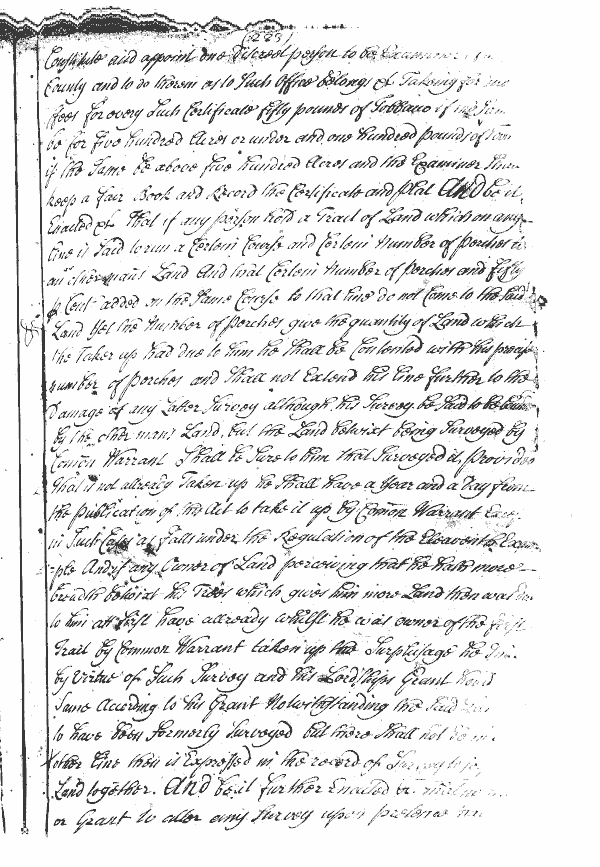 Constitute and appoint one Discreet person to be Examiner
County and to do therein as to Such Office belongs & Taking for
ffees for every Such Certificate fifty pounds of Tobbaco if
be for five hundred Acres or under and one hundred pounds of
if the Same be above five hundred Acres and the Examiner
keep a fair Book and Record the Certificate and plat And be it
Enacted That if any person hold a Tract of Land which on any
line is Said to run a Certein Course and Certein Number of perches
an other mans Land And that Certein Number of perches and fifty
p Cent added on the Same Course to that line do not Come to the Said
Land Yet the Number of perches give the quantity of Land which
the Taker up had due to him he Shall be Contented with his precise
number of perches and Shall not Extend his line further to the
Damage of any Latter Survey although his Survey be Said to be
by the other mans Land, but the Land betwixt being Surveyed by
Comon Warrant Shall be Sure to him that Surveyed it, provided
that if not allready Taken up he Shall have a Year and a Day from
the publication of this Act to take it up by Comon Warrant
in Such Cases as falls under the Regulation of the Eleaventh Exam-
-ple And if any Owner of Land perceiving that he hath more
breadth betwixt his Trees which gives him more Land then was
to him att first have allready whilst he was owner of the first
Tract by Common Warrant taken up the Surplusage he
by virtue of Such Survey and his Lordships Grant
Same According to his Grant Notwithstanding the Said
to have been formerly Surveyed but there Shall not be
other line then is Expressed in the record of Survey to
Land together. And be it further Enacted
or Grant to alter any Survey upon pretence